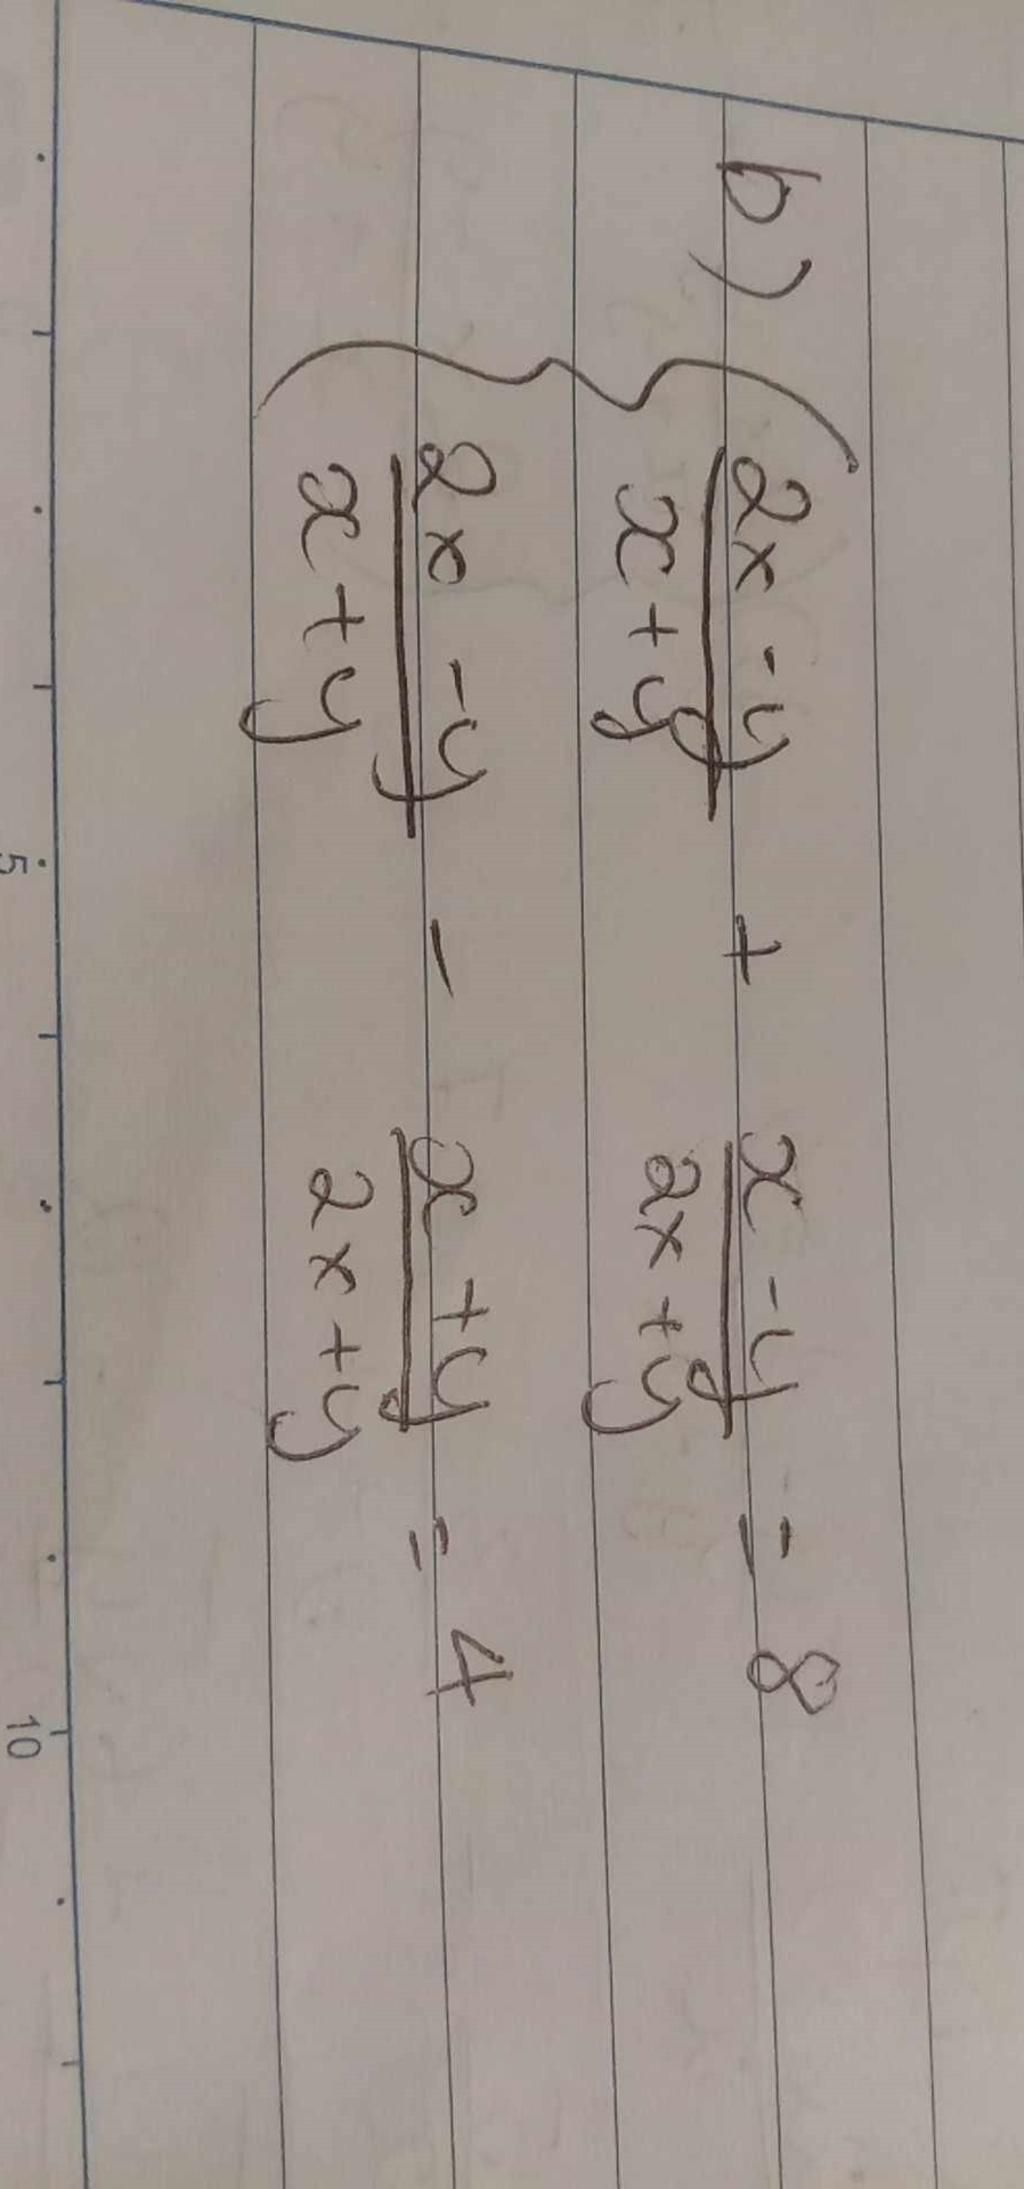 b) { (2x - y)/(x + y) + (x - y)/(2x + y) = 8
(2x - y)/(x + y) - (x + y)/(2x + y) = 4
5
10